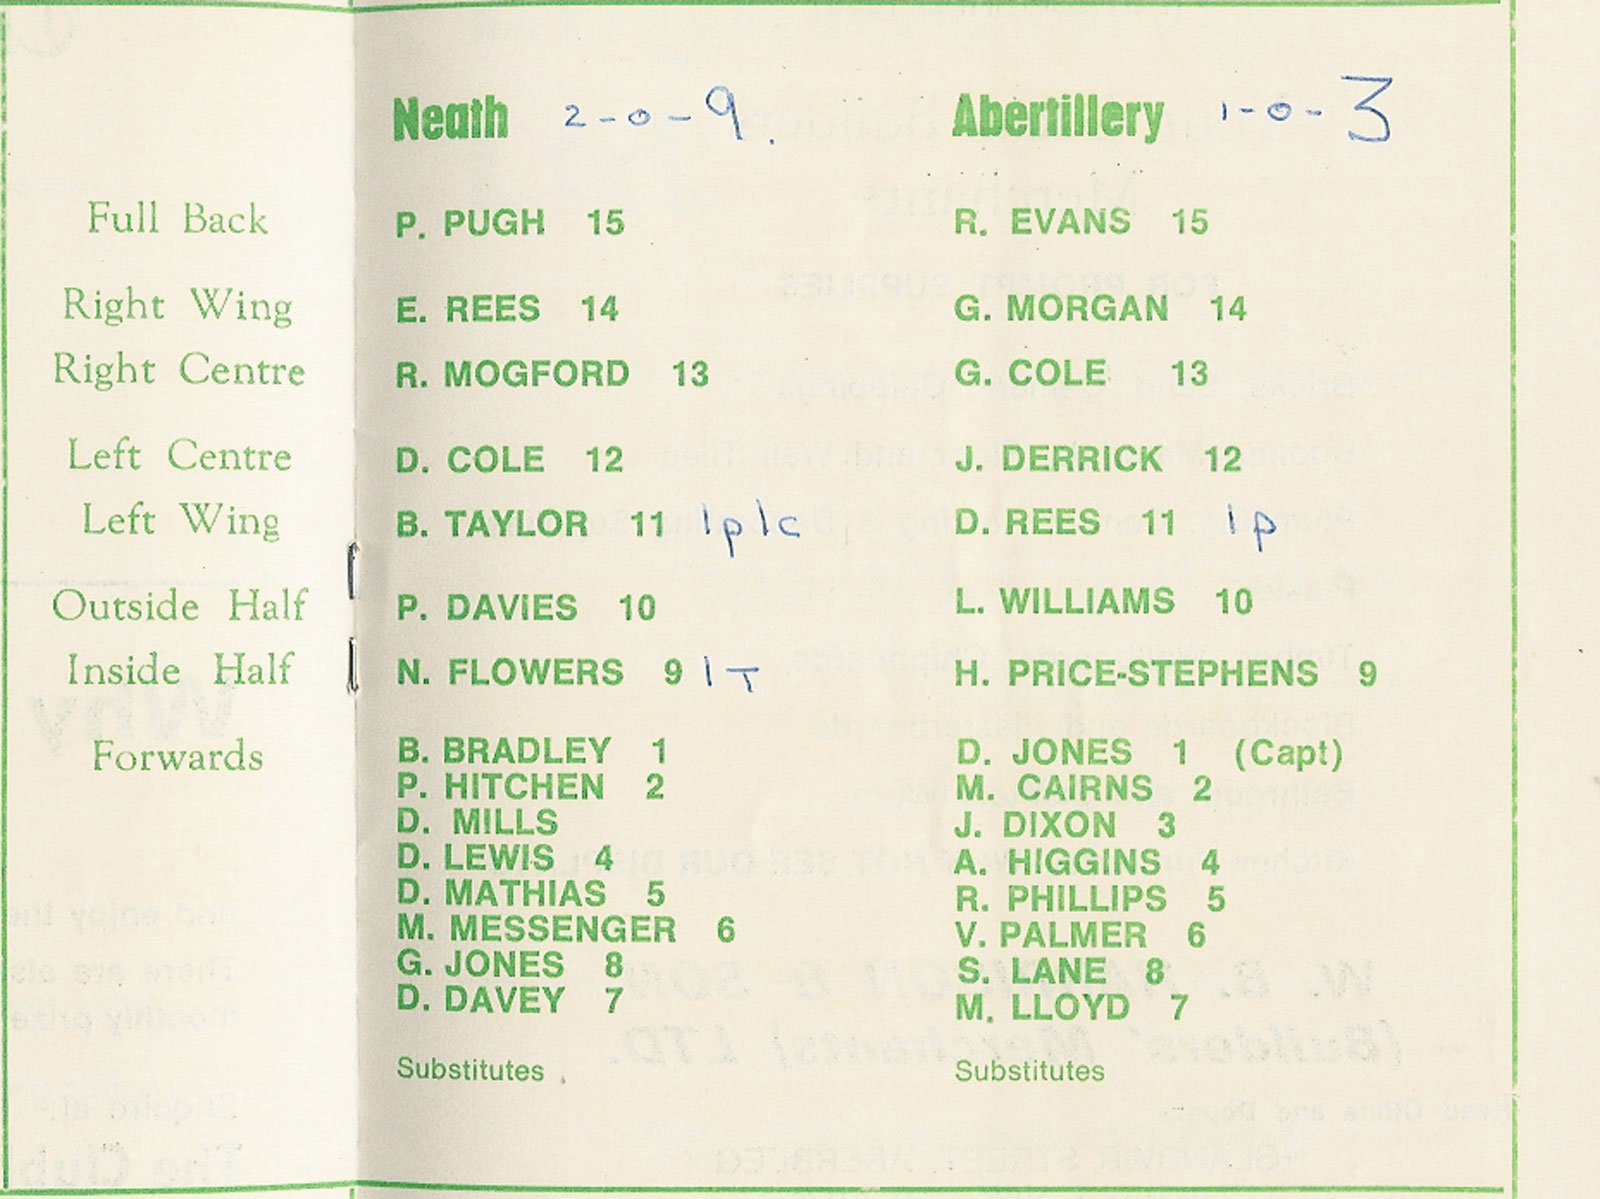 Neath 2-0-9. Abertillery 1-0-3
Full Back P. PUGH 15 R. EVANS 15
Right Wing E. REES 14 G. MORGAN 14
Right Centre R. MOGFORD 13 G. COLE 13
Left Centre D. COLE 12 J. DERRICK 12
Left Wing B. TAYLOR 11 1p1c D. REES 11 1p
Outside Half P. DAVIES 10 L. WILLIAMS 10
Inside Half N. FLOWERS 9 1T H. PRICE-STEPHENS 9
Forwards B. BRADLEY 1 D. JONES 1 (Capt)
P. HITCHEN 2 M. CAIRNS 2
D. MILLS J. DIXON 3
D. LEWIS 4 A. HIGGINS 4
D. MATHIAS 5 R. PHILLIPS 5
M. MESSENGER 6 V. PALMER 6
G. JONES 8 S. LANE 8
D. DAVEY 7 M. LLOYD 7
Substitutes Substitutes